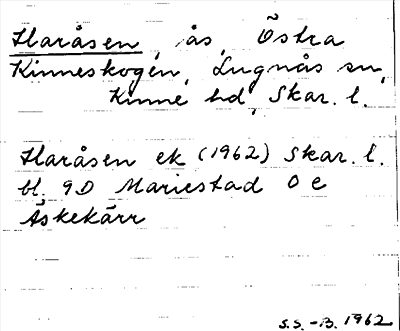 Haråsen, ås, Östra
Kinneskogen, Lugnås sn,
Kinne hd, Skar. l.
Haråsen ek (1962) Skar. l.
bl. 9D Mariestad 0 e
Äskekärr
S.S. -B. 1962